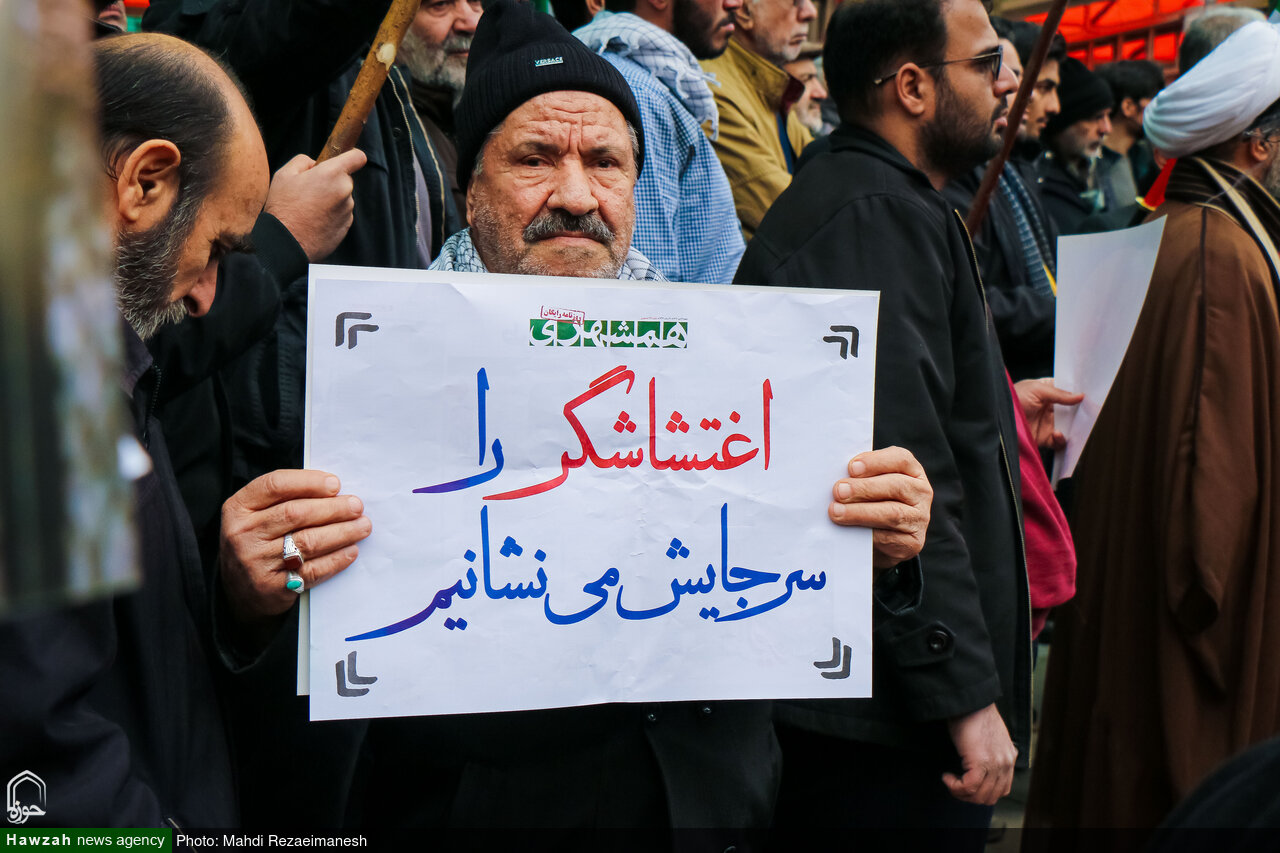 VERSACE
روزنامه رایگان
همشهری
اغتشاشگر را
سر جایش می نشانیم
حوزه
Hawzah news agency Photo: Mahdi Rezaeimanesh